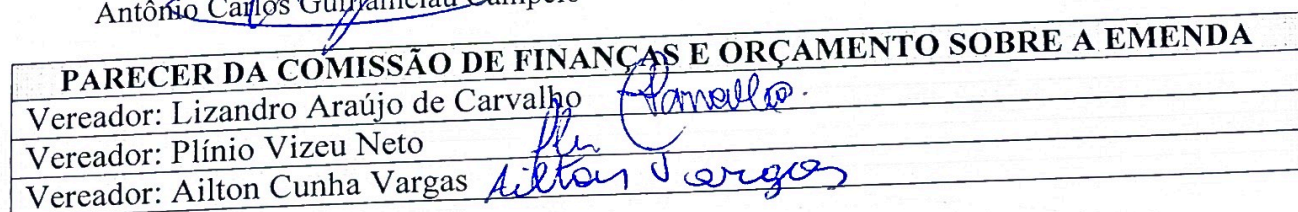 Antônio Carlos
PARECER DA COMISSÃO DE FINANÇAS E ORÇAMENTO SOBRE A EMENDA
Vereador: Lizandro Araújo de Carvalho Carvalho.
Vereador: Plínio Vizeu Neto
Vereador: Ailton Cunha Vargas Ailton Vargas